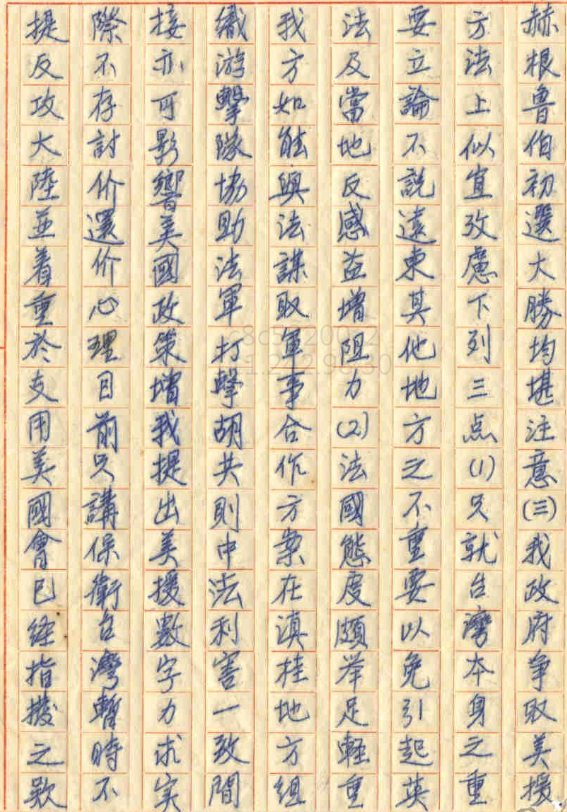 赫根魯伯初選大勝均堪注意(三)我政府爭取美援
方法上似宜攷慮下列三点(1)只就台灣本身之重
要立論不説遠東其他地方之不重要以免引起英
法及當地反感益增阻力(2)法國態度頗举足軽重
我方如能與法謀取軍事合作方案在滇桂地方組
織游擊隊協助法軍打擊胡共則中法利害一致間
接亦可影響美國政策増我提出美援數字力求实
際不存討价還价心理目前只講保衛台灣暫時不
提反攻大陸並着重於支用美國會已経指撥之款